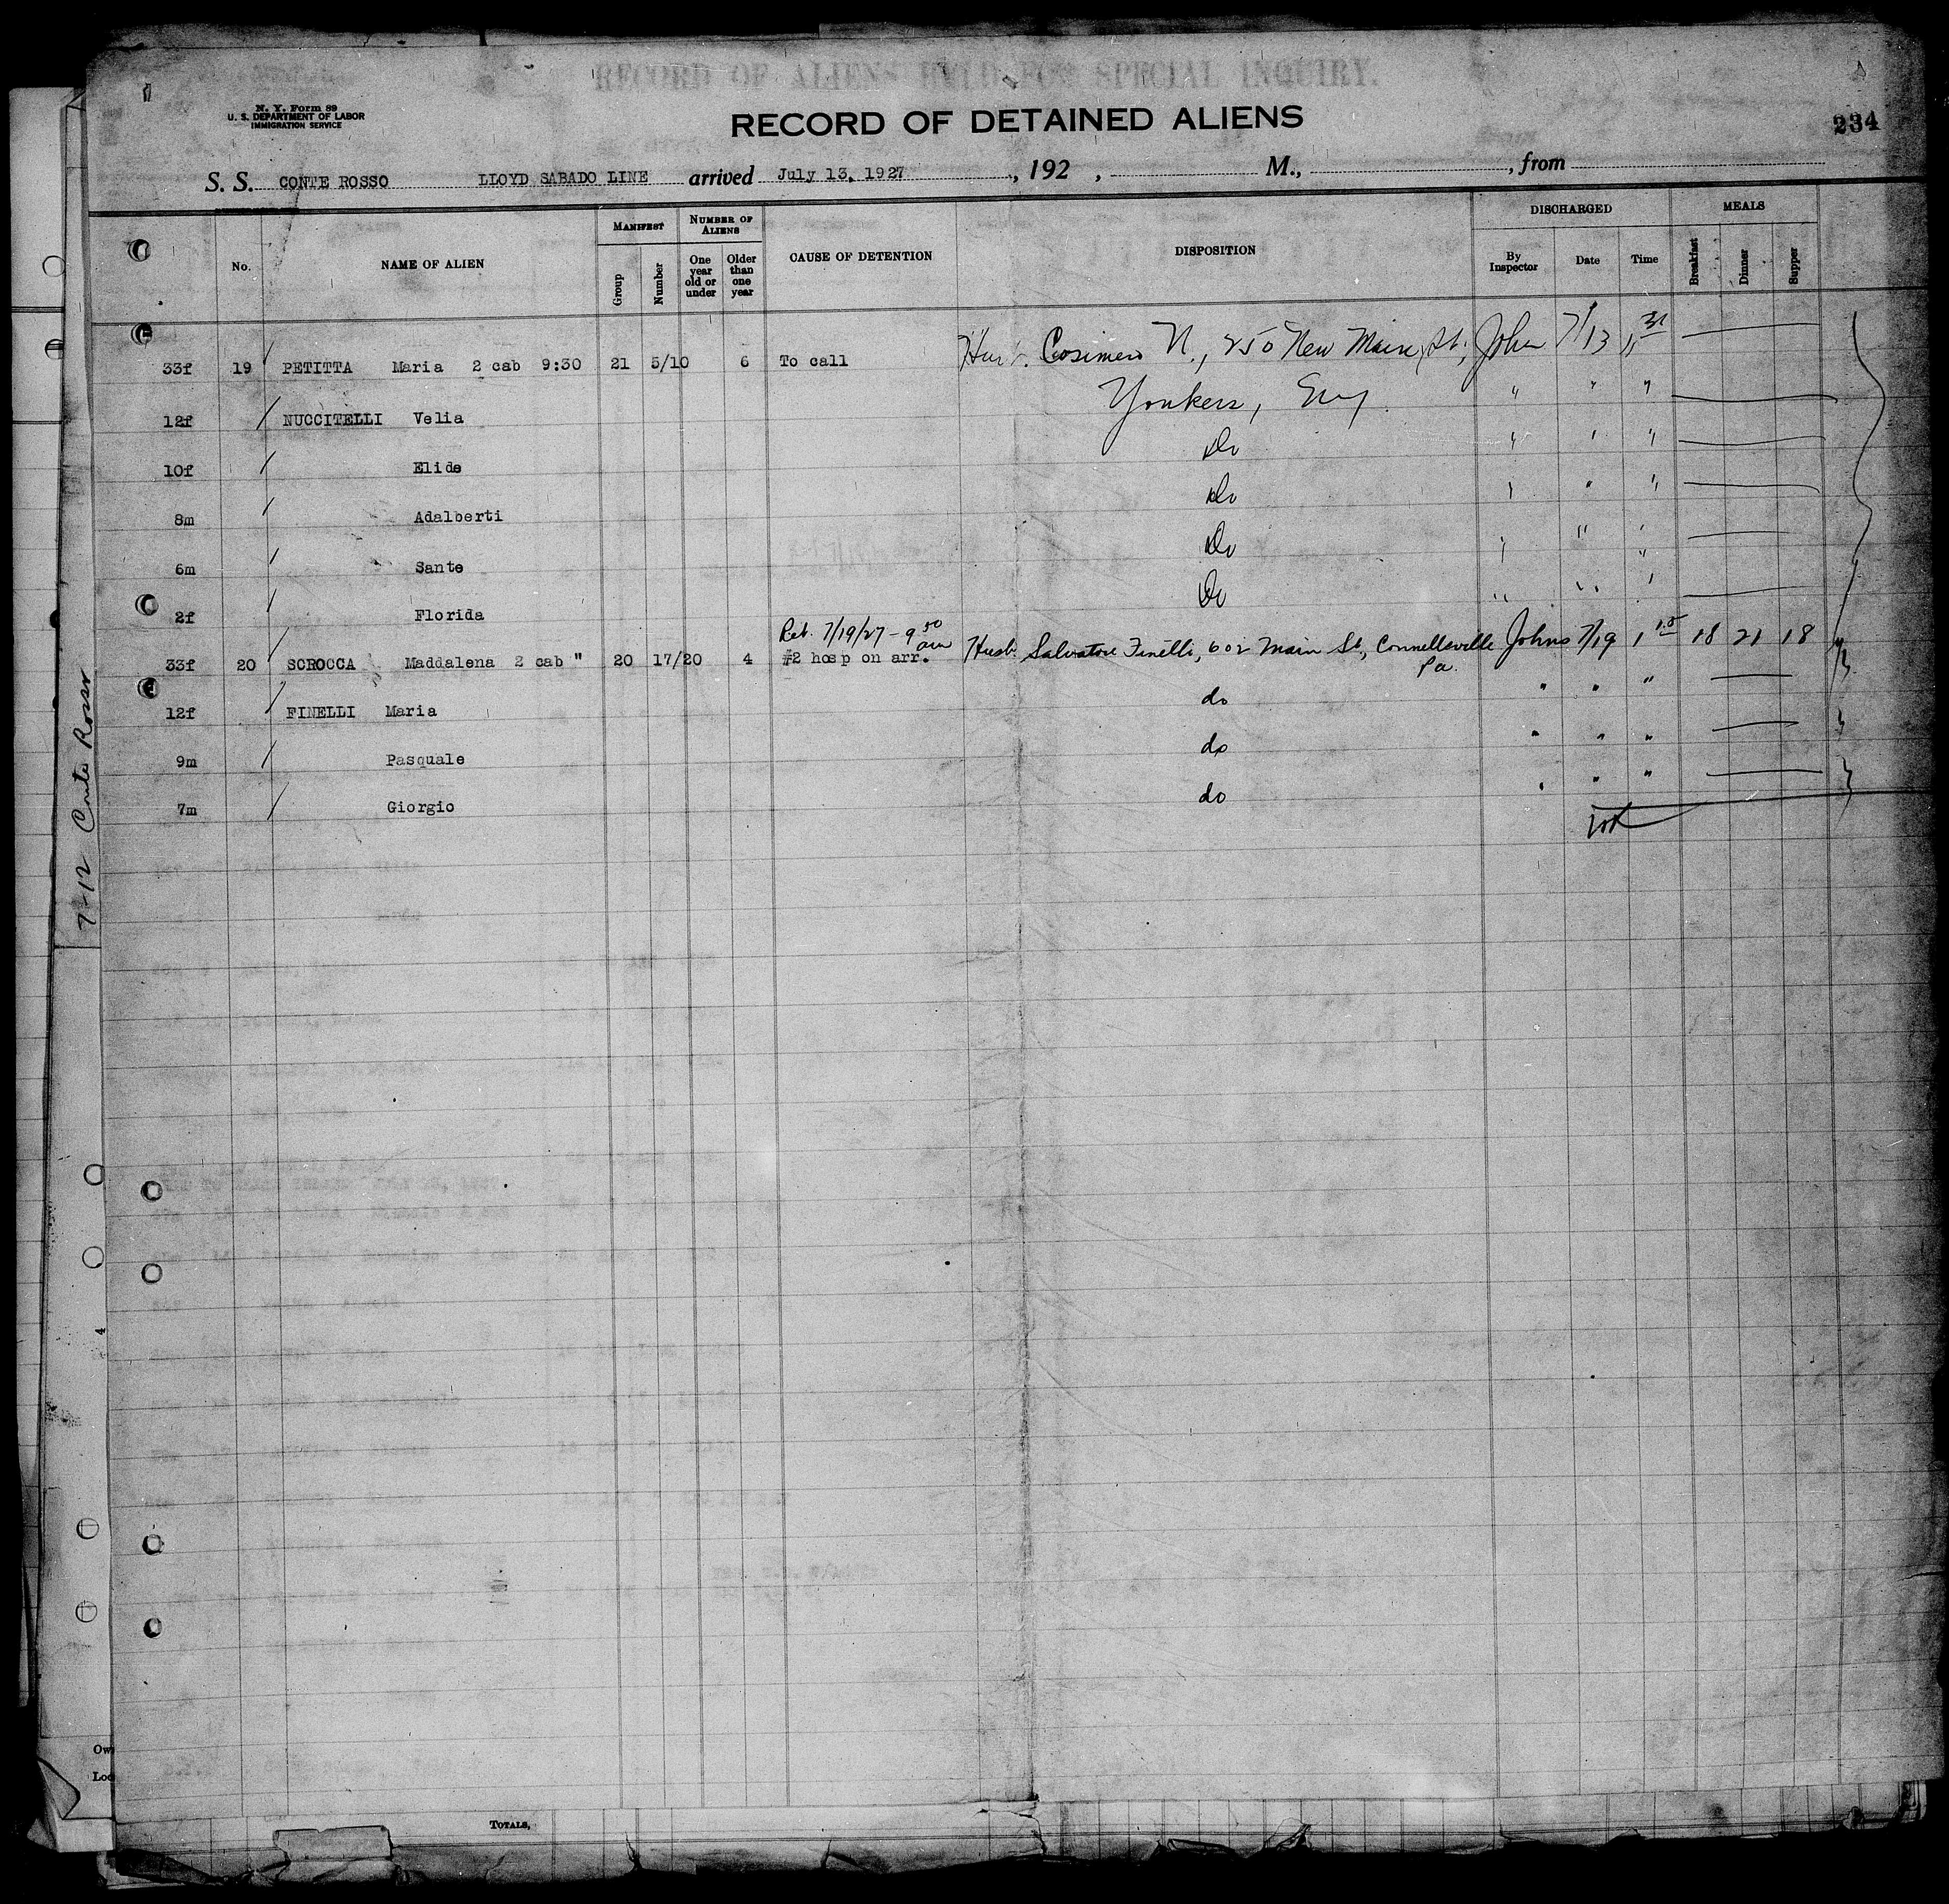 RECORD OF ALIENS HELD FOR SPECIAL INQUIRY.
N. Y. Form 89
U. S. DEPARTMENT OF LABOR
IMMIGRATION SERVICE
RECORD OF DETAINED ALIENS
234
S. S. CONTE ROSSO LLOYD SABADO LINE arrived July 13, 1927, 192 , M., , from
No. NAME OF ALIEN MANIFEST Group Number NUMBER OF ALIENS One year old or under Older than one year CAUSE OF DETENTION DISPOSITION DISCHARGED By Inspector Date Time MEALS Breakfast Dinner Supper
33f 19 PETITTA Maria 2 cab 9:30 21 5/10 6 To call Husb. Cosimero N., 250 New Main St., John 7/13
12f NUCCITELLI Velia Yonkers, " " "
10f Elide Do " " "
8m Adalberti Do " " "
6m Sante Do " " "
2f Florida Do " " "
Reb. 7/19/27 - 9 50 am
33f 20 SCROCCA Maddalena 2 cab " 20 17/20 4 #2 hosp on arr. Husb. Salvatore Finelli, 602 Main St., Connellsville Pa. Johns 7/19 1 18 21 18
12f FINELLI Maria do " " "
9m Pasquale do " " "
7m Giorgio do " " "
7-12 Conte Rosso
Ow
Loc
TOTALS,